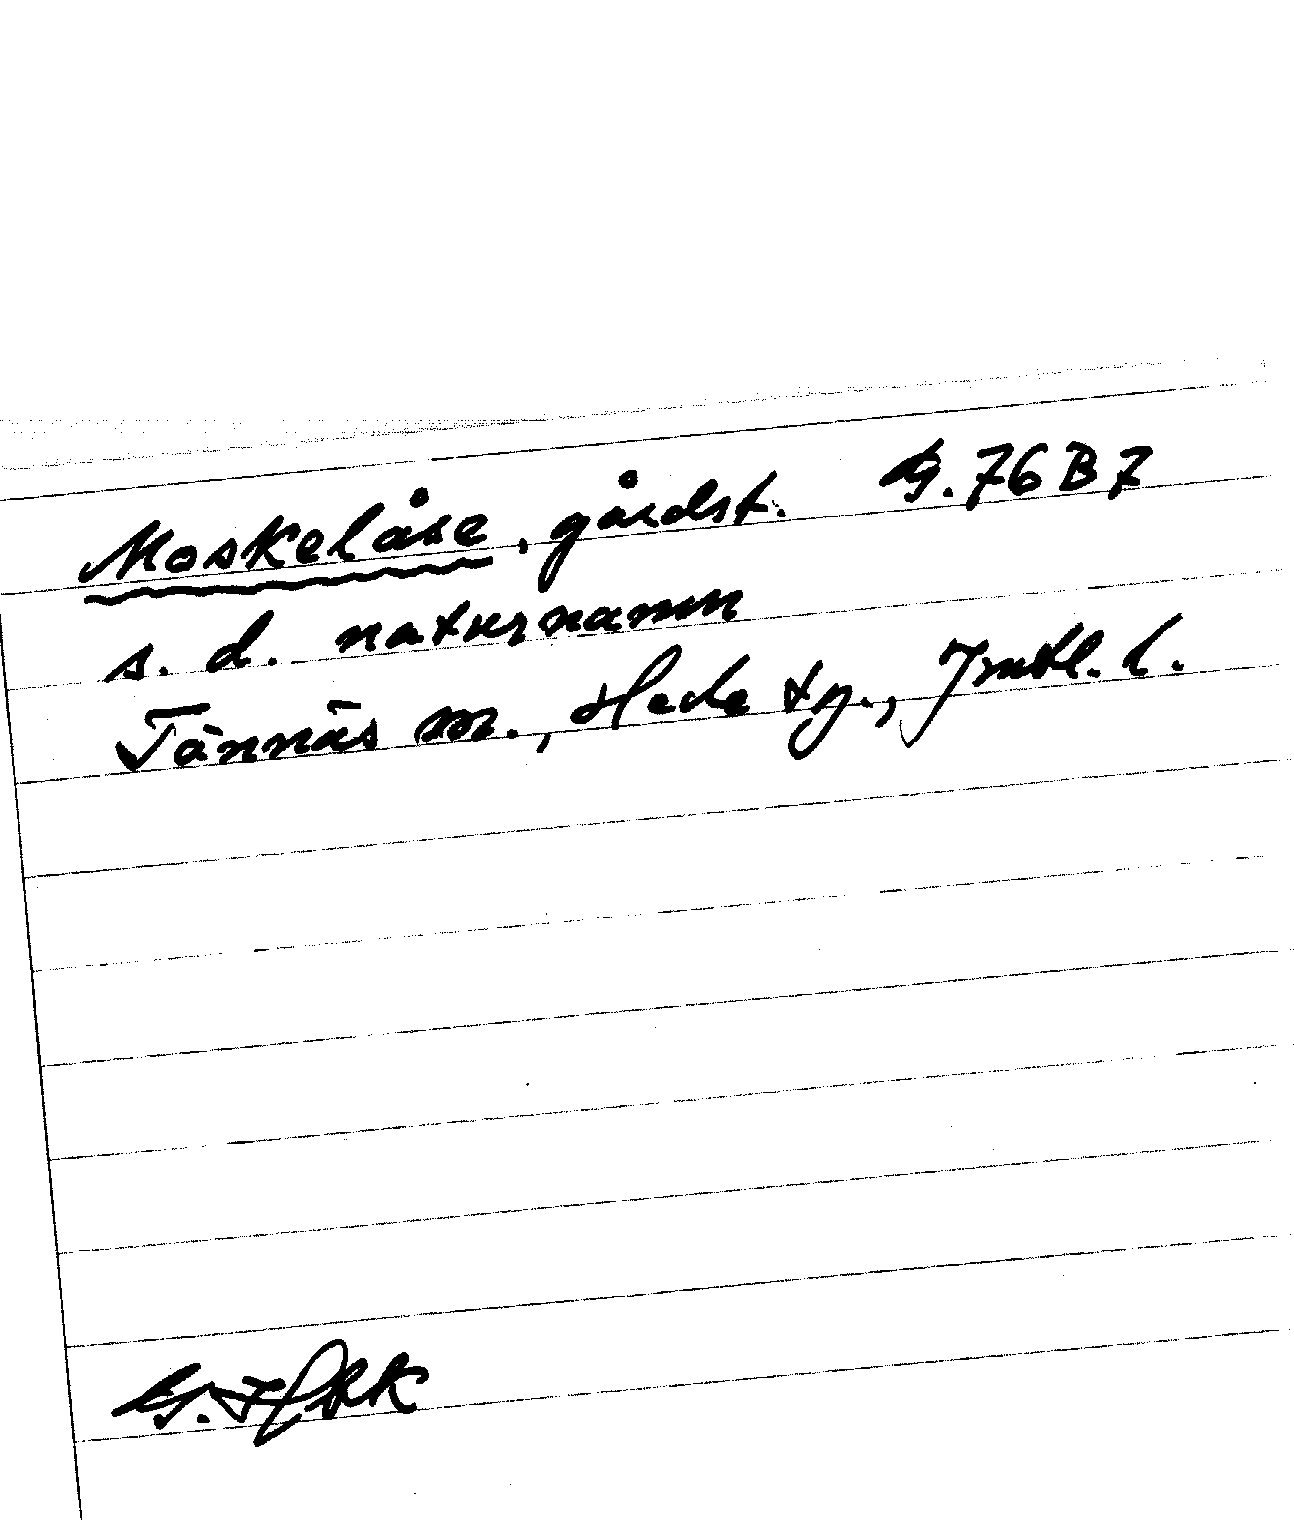 Moskelåse, gårdst. G.76B7
s. d. naturnamn
Tännäs sn., Hede tg., Jmtl. l.